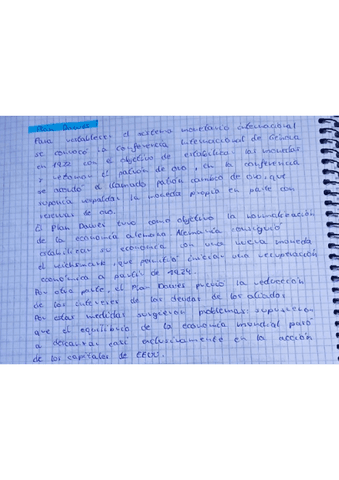 Plan Dawes
Para restablecer el sistema monetario internacional
se convocó la Conferencia Internacional de Génova
en 1922 con el objetivo de estabilizar las monedas
y retomar el patrón de oro, en la conferencia
se acordó el llamado patrón cambio de oro, que
suponía respaldar la moneda propia en parte con
reservas de oro.
El Plan Dawes tuvo como objetivo la normalización
de la economía alemana Alemania consiguió
estabilizar su economía con una nueva moneda
el reichsmark, que permitió iniciar una recuperación
económica a partir de 1924.
Por otra parte, el Plan Dawes previó la reducción
de los intereses de las deudas de los aliados
Por estas medidas surgieron problemas: supusieron
que el equilibrio de la economía mundial pasó
a descansar casi exclusivamente en la acción
de los capitales de EEUU.